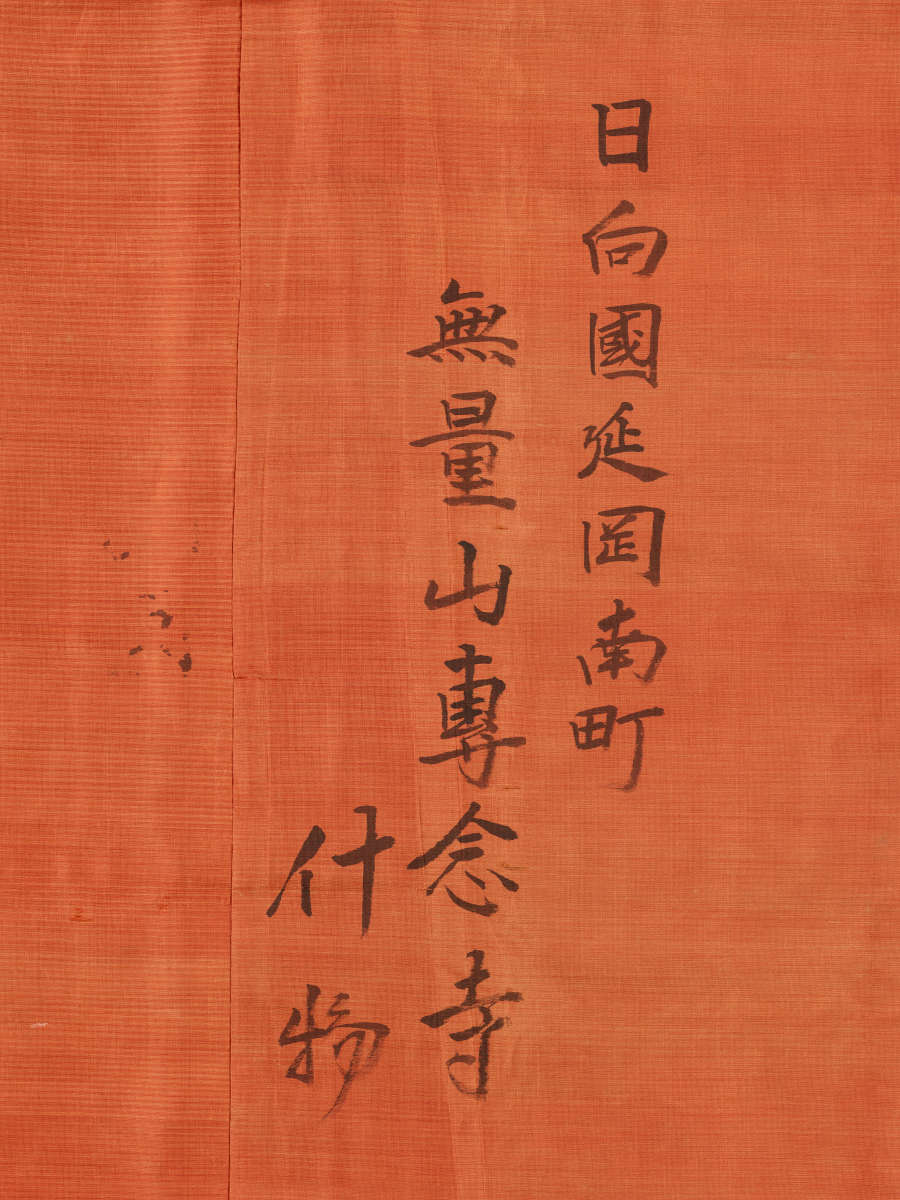 日向國延岡南町
無量山專念寺
什物